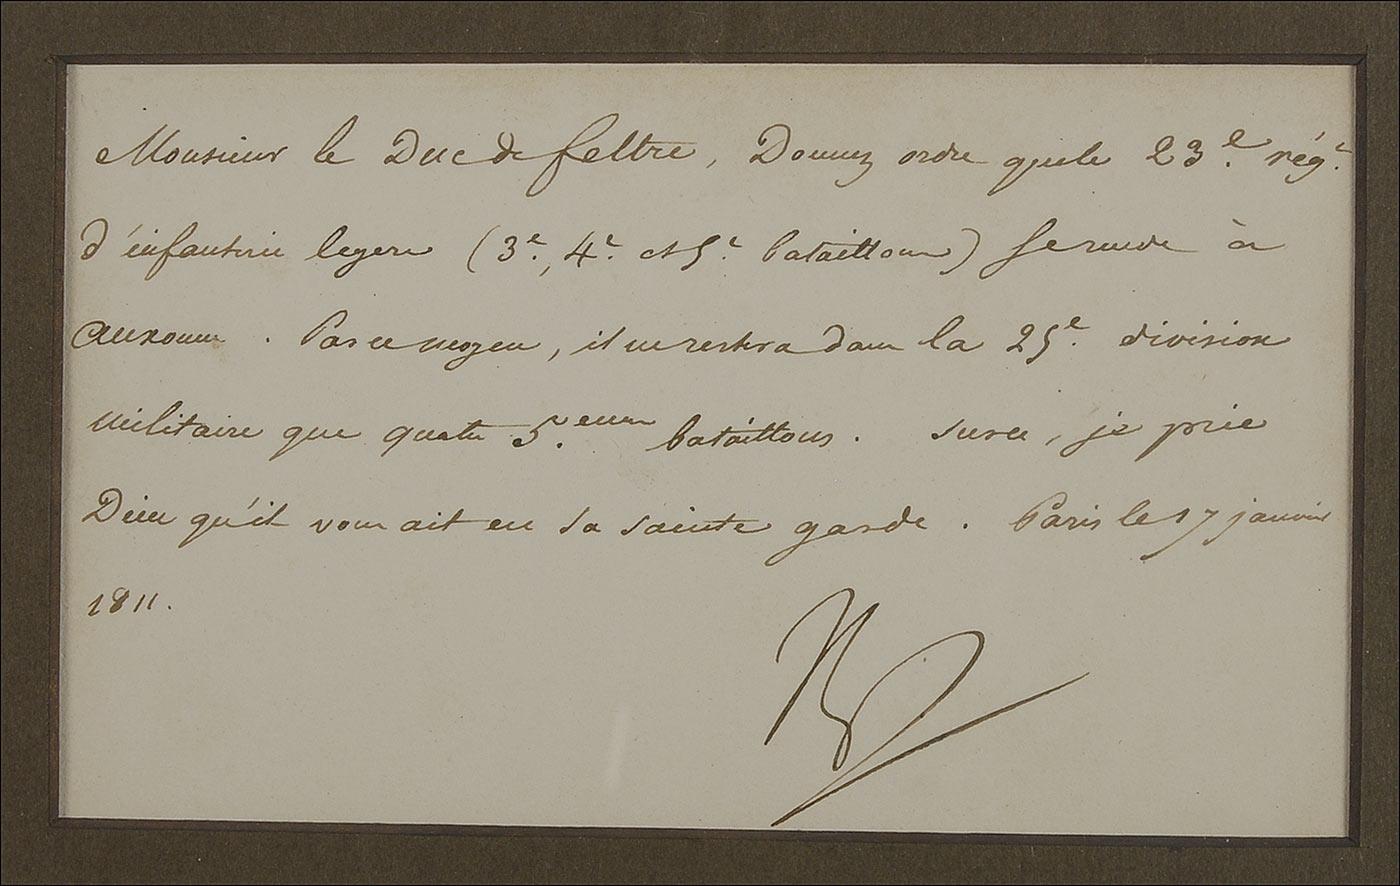 Monsieur le Duc de feltre, Donnez ordre que le 23.e rég.t
d'infanterie legere (3.e, 4.e et 5.e bataillons) se rende à
auxonne. Par ce moyen, il ne restera dans la 25.e division
militaire que quatre 5.emes bataillons. sur ce, je prie
Dieu qu'il vous ait en sa sainte garde. Paris le 17 janvier
1811.
Np